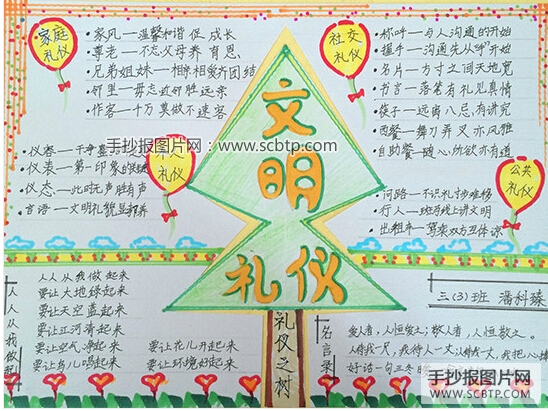 家庭
礼仪
·家风—温馨和谐促成长
·尊老—不忘父母养育恩
·兄弟姐妹—相亲相爱齐团结
·邻里—毋忘近邻胜远亲
·作客—千万莫做不速客
社交
礼仪
·称呼—与人沟通的开始
·握手—沟通先从"手"开始
·名片—方寸之间天地宽
·书言—落笔有礼见真情
·筷子—远离八忌,有讲究
·西餐—舞刀弄叉亦风雅
·自助餐—随心所欲亦有道
手抄报图片网: www.scbtp.com
手抄报图片网: www.scbtp.com
·仪容—干净
·仪表—第一印象的
·仪态—此时无声胜有声
·言语—文明礼貌显
礼仪
公共
礼仪
·问路—不识礼寸步难移
·行人—斑马线上讲文明
·出租车—乘卖双方互体谅
文
明
礼仪
礼仪之树
人人从我做起
人人从我做起来
要让大地绿起来
要让天空蓝起来
要让江河清起来
要让空气净起来
要让鸟儿唱起来
要让花儿开起来
要让环境好起来
三(3)班 潘科臻
名言录
爱人者,人恒爱之;敬人者,人恒敬之。
人待我一尺,我待人一丈
好话一句三冬暖
手抄报图片网
SCBTP.COM